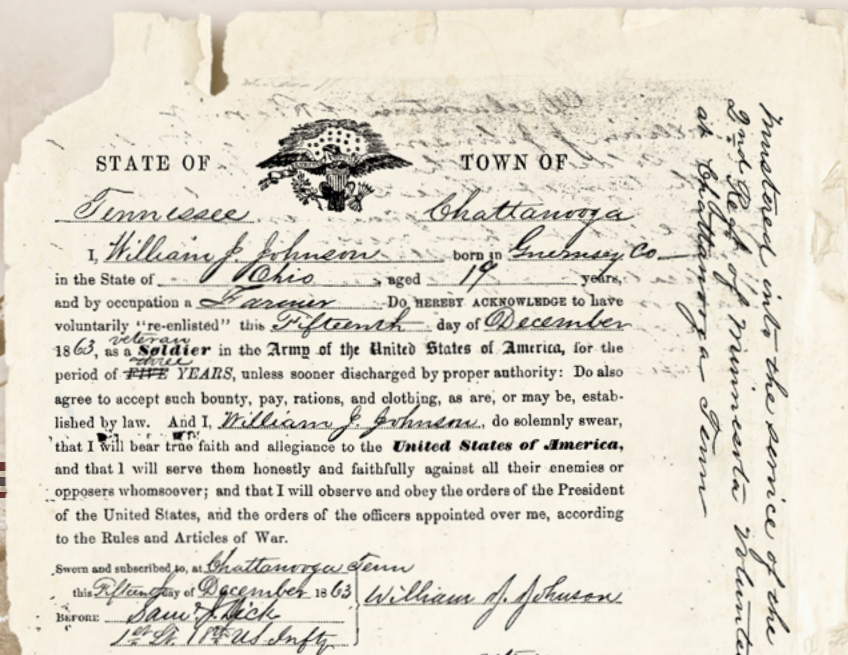 STATE OF TOWN OF
Tennessee Chattanooga
I, William J. Johnson born in Guernsey Co
in the State of Ohio, aged 19 years,
and by occupation a Farmer Do HEREBY ACKNOWLEDGE to have
voluntarily "re-enlisted" this Fifteenth day of December
veteran
1863, as a Soldier in the Army of the United States of America, for the
three
period of FIVE YEARS, unless sooner discharged by proper authority: Do also
agree to accept such bounty, pay, rations, and clothing, as are, or may be, estab-
lished by law. And I, William J. Johnson, do solemnly swear,
that I will bear true faith and allegiance to the United States of America,
and that I will serve them honestly and faithfully against all their enemies or
opposers whomsoever; and that I will observe and obey the orders of the President
of the United States, and the orders of the officers appointed over me, according
to the Rules and Articles of War.
Sworn and subscribed to, at Chattanooga Tenn
this Fifteenth day of December 1863
William J. Johnson
BEFORE Saml J. Dick
1st Lt. 18th US Infty
Mustered into the service of the
2nd Regt of Minnesota Volunte
at Chattanooga Tenn